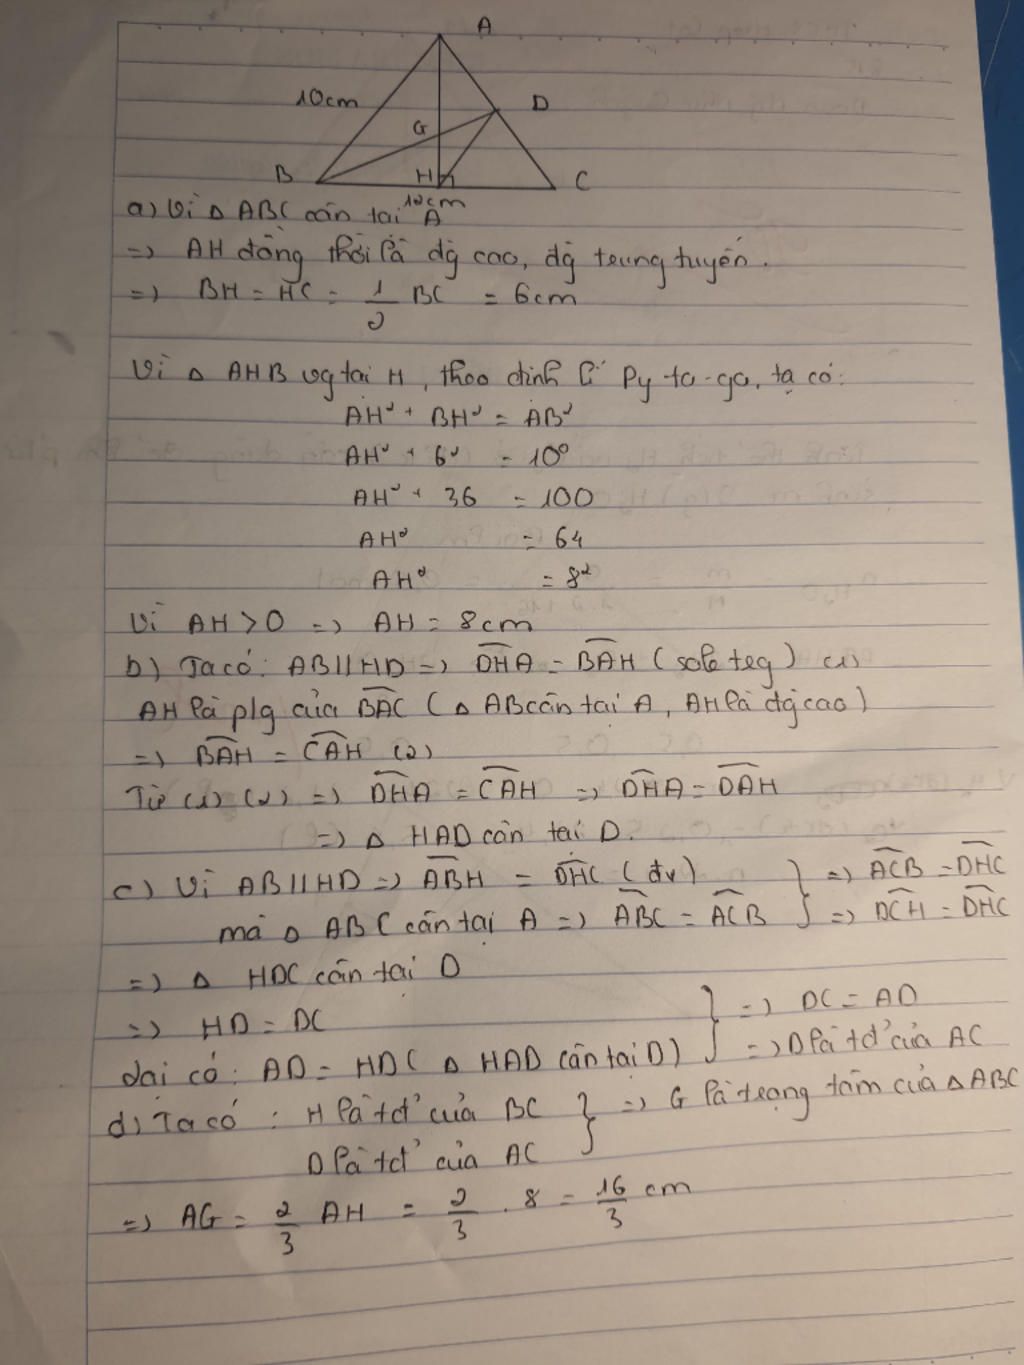 A
10cm
D
G
B
H
C
12cm
a) Vì Δ ABC cân tại A
=> AH đồng thời là đg cao, đg trung tuyến.
=> BH = HC = 1/2 BC = 6cm
Vì Δ AHB vg tại H, theo định lí Py-ta-go, ta có:
AH² + BH² = AB²
AH² + 6² = 10²
AH² + 36 = 100
AH² = 64
AH² = 8²
Vì AH > 0 => AH = 8cm
b) Ta có: AB // HD => DHA = BAH (sole trg) (1)
AH là p/g của BAC (Δ ABC cân tại A, AH là đg cao)
=> BAH = CAH (2)
Từ (1) (2) => DHA = CAH => DHA = DAH
=> Δ HAD cân tại D.
c) Vì AB // HD => ABH = DHC (đv) } => ACB = DHC
mà Δ ABC cân tại A => ABC = ACB } => DCH = DHC
=> Δ HDC cân tại D
=> HD = DC } => DC = AD
lại có: AD = HD (Δ HAD cân tại D) } => D là tđ' của AC
d) Ta có: H là tđ' của BC } => G là trọng tâm của Δ ABC
D là tđ' của AC }
=> AG = 2/3 AH = 2/3 . 8 = 16/3 cm